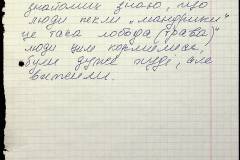 знайомих знаю, що
люди пекли „мандрики"
це така лобода (трава)"
люди цим кормились,
були дуже худі, але
вижили.